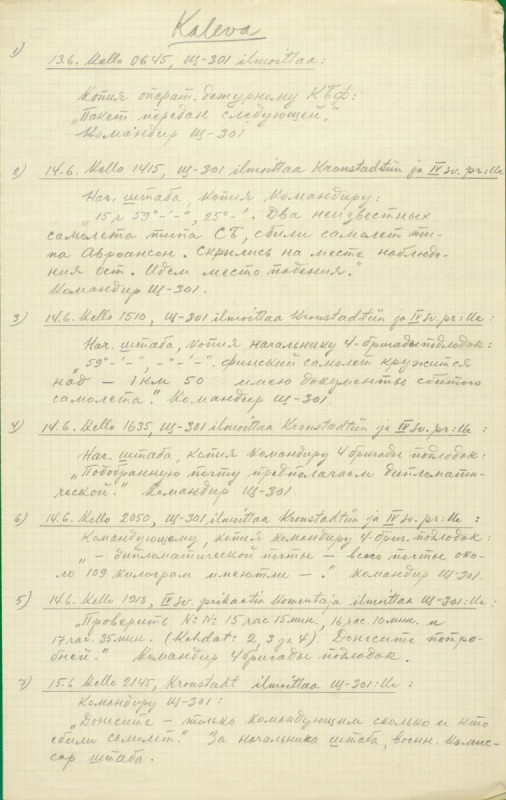 Kaleva
1)
13.6. Kello 0645, Щ-301 ilmoittaa:
Копия операт. дежурному КБФ:
„Пакет передан следующей.“
Командир Щ-301
2) 14.6. Kello 1415, Щ-301 ilmoittaa Kronstadtiin ja IV sv. pr:lle
Нач. штаба, копия Командиру:
„15 л 59°-'-", 25°-'. Два неизвестных
самолета типа СБ, сбили самолет ти-
па Авроансон. Скрылись на месте наблюде-
ния ост. Идем место падения.“
Командир Щ-301.
3) 14.6. Kello 1510, Щ-301 ilmoittaa Kronstadtiin ja IV sv. pr:lle:
Нач. штаба, копия начальнику 4-бригады подлодок:
„59°-'-", -°-'-". Финский самолет кружится
над — 1 км 50 имею документы сбитого
самолета.“ Командир Щ-301.
4) 14.6. Kello 1635, Щ-301 ilmoittaa Kronstadtiin ja IV sv. pr:lle:
Нач. штаба, копия Командиру 4 бригады подлодок:
„Подобранную почту предполагаем дипломати-
ческой.“ Командир Щ-301.
6) 14.6. Kello 2050, Щ-301 ilmoittaa Kronstadtiin ja IV sv. pr:lle:
Командующему, копия командиру 4-бриг. подлодок:
„— дипломатической почты — всего почты око-
ло 109 килограм имеютли —.“ Командир Щ-301.
5) 14.6. Kello 1918, IV sv. prikaatin komentaja ilmoittaa Щ-301:lle:
„Проверить №№ 15 час 15 мин., 16 час. 10 мин. и
17 час. 35 мин. (kohdat: 2, 3 ja 4). Донесите потро-
бней.“ Командир 4 бригады подлодок.
7) 15.6 Kello 2145, Kronstadt ilmoittaa Щ-301:lle:
Командиру Щ-301:
„Донесите — только командующим сколько и кто
сбили самолет.“ За начальника штаба, воен. Комис-
сар штаба.